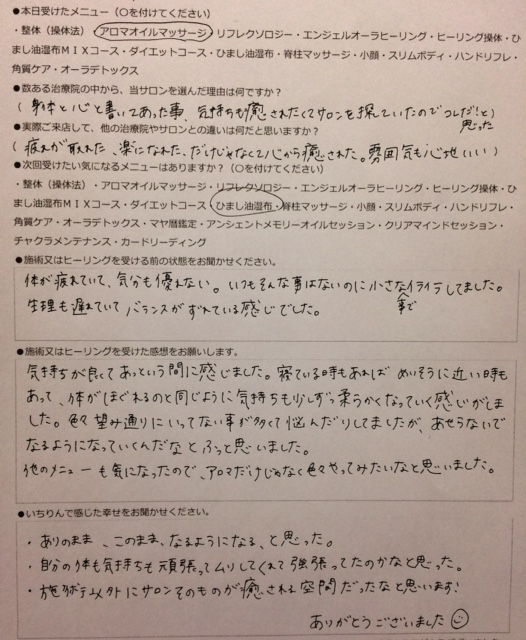 ●本日受けたメニュー（○を付けてください）
・整体（操体法）・アロマオイルマッサージ・リフレクソロジー・エンジェルオーラヒーリング・ヒーリング操体・ひ
まし油湿布ＭＩＸコース・ダイエットコース・ひまし油湿布・脊柱マッサージ・小顔・スリムボディ・ハンドリフレ・
角質ケア・オーラデトックス
●数ある治療院の中から、当サロンを選んだ理由は何ですか？
（身体と心と書いてあった事、気持ちも癒されたくてサロンを探していたのでコレだ！と）
思った
●実際ご来店して、他の治療院やサロンとの違いは何だと思いますか？
（疲れが取れた、楽になれた、だけじゃなくて心から癒された。雰囲気も心地いい）
●次回受けたい気になるメニューはありますか？（○を付けてください）
・整体（操体法）・アロマオイルマッサージ・リフレクソロジー・エンジェルオーラヒーリング・ヒーリング操体・ひ
まし油湿布ＭＩＸコース・ダイエットコース・ひまし油湿布・脊柱マッサージ・小顔・スリムボディ・ハンドリフレ・
角質ケア・オーラデトックス・マヤ暦鑑定・アンシェントメモリーオイルセッション・クリアマインドセッション・
チャクラメンテナンス・カードリーディング
●施術又はヒーリングを受ける前の状態をお聞かせください。
体が疲れていて、気分も優れない。いつもそんな事はないのに小さな事でイライラしてました。
生理も遅れていてバランスがずれている感じでした。
●施術又はヒーリングを受けた感想をお願いします。
気持ちが良くてあっという間に感じました。寝ている時もあれば めいそうに近い時も
あって、体がほぐれるのと同じように気持ちも少しずつ柔らかくなっていく感じがしま
した。色々望み通りにいってない事が多くて悩んだりしてましたが、あせらないで
なるようになっていくんだなとふっと思いました。
他のメニューも気になったので、アロマだけじゃなく色々やってみたいなと思いました。
●いちりんで感じた幸せをお聞かせください。
・ありのまま、このまま、なるようになる、と思った。
・自分の体も気持ちも頑張ってムリしてくれて強張ってたのかなと思った。
・施術以外にサロンそのものが癒される空間だったなと思います！
ありがとうございました☺